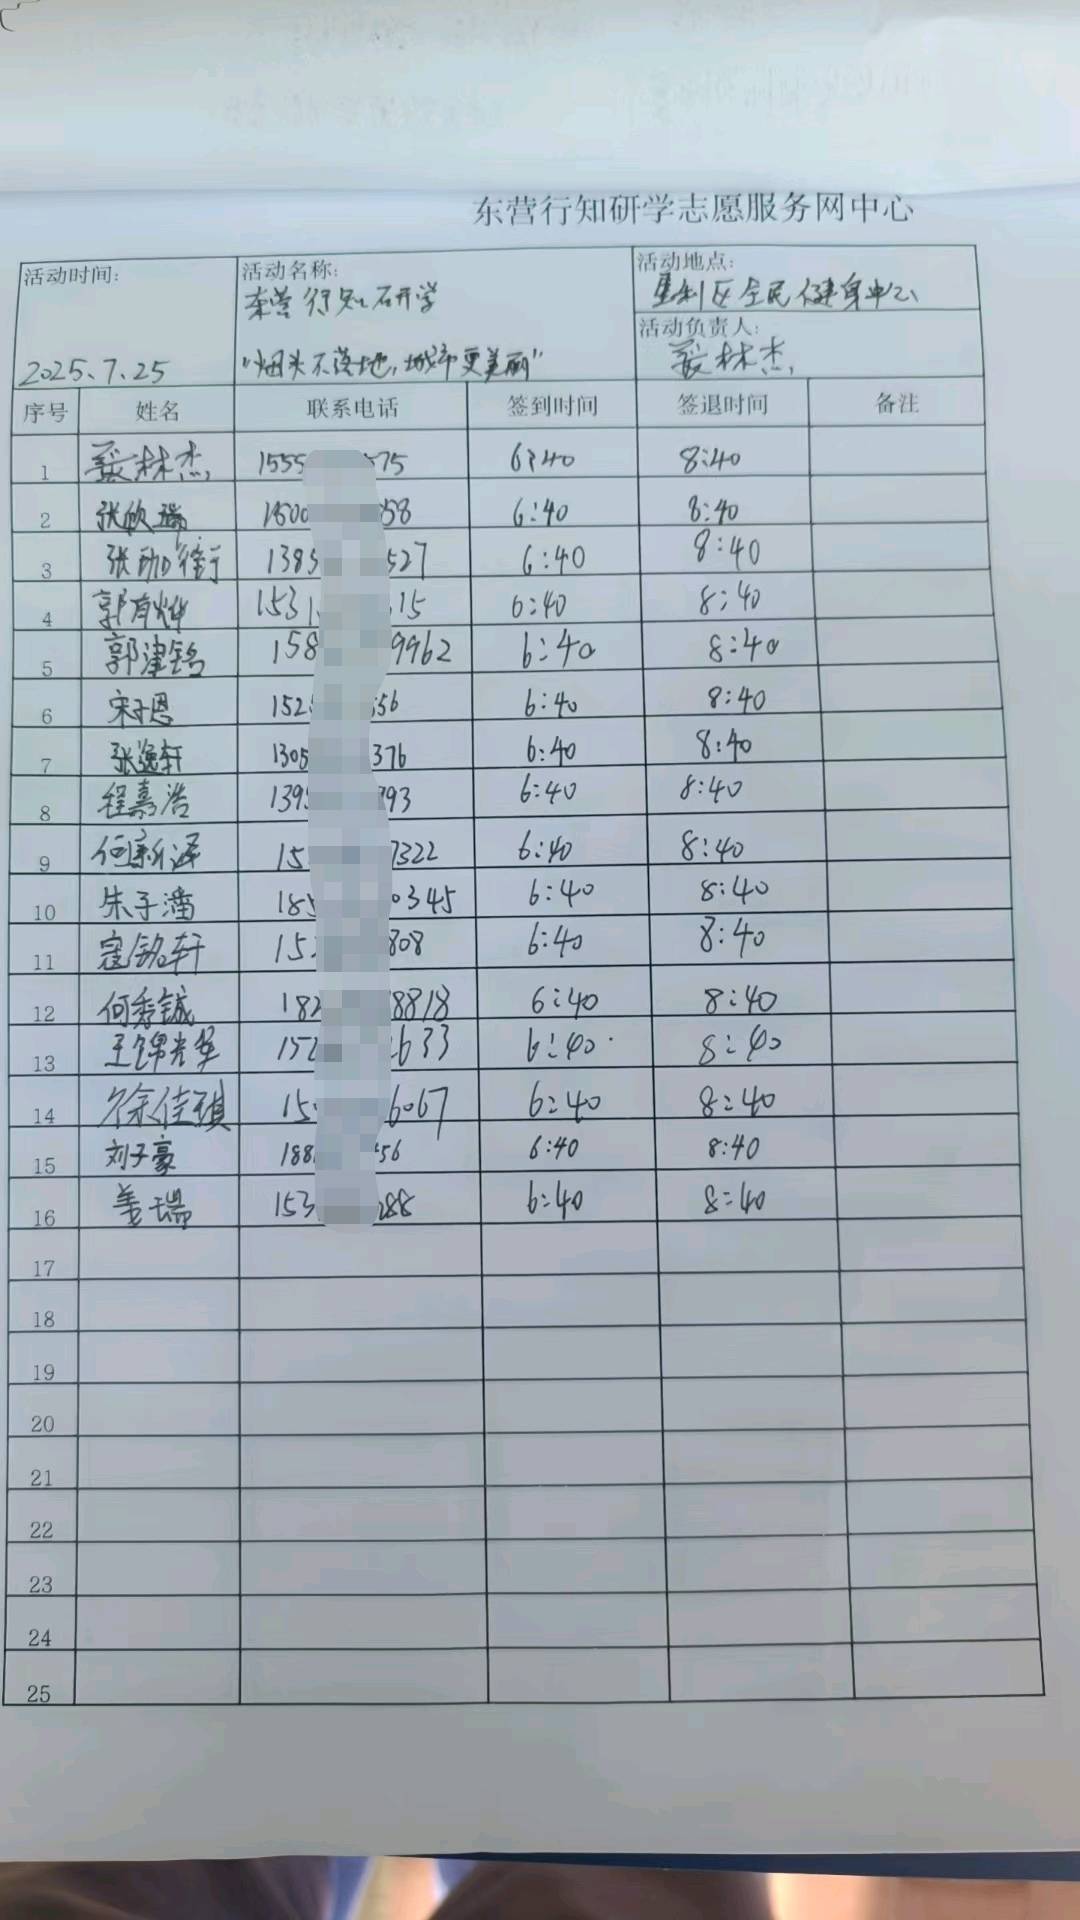 东营行知研学志愿服务网中心
活动时间: 活动名称: 活动地点:
东营行知研学 垦利区全民健身中心
活动负责人:
2025.7.25 "烟头不落地,城市更美丽" 林杰
序号 姓名 联系电话 签到时间 签退时间 备注
1 林杰 1555 575 6:40 8:40
2 张欣瑞 1500 358 6:40 8:40
3 张珈 1385 527 6:40 8:40
4 郭 153 15 6:40 8:40
5 郭津铭 158 9962 6:40 8:40
6 宋子恩 152 556 6:40 8:40
7 张逸轩 1305 376 6:40 8:40
8 程嘉浩 139 793 6:40 8:40
9 何新泽 15 7322 6:40 8:40
10 朱子潘 185 0345 6:40 8:40
11 寇铭轩 15 808 6:40 8:40
12 何秀铖 182 8818 6:40 8:40
13 王锦 152 633 6:40 8:40
14 徐佳琪 15 6067 6:40 8:40
15 刘子豪 188 56 6:40 8:40
16 姜瑞 153 288 6:40 8:40
17
18
19
20
21
22
23
24
25